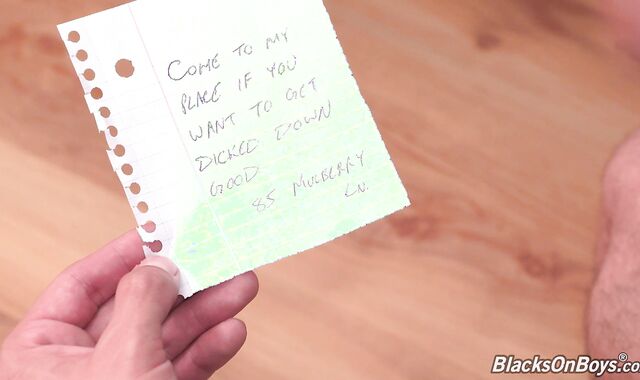 COME TO MY
PLACE IF YOU
WANT TO GET
DICKED DOWN
GOOD
85 MULBERRY
LN.
BlacksOnBoys®.co